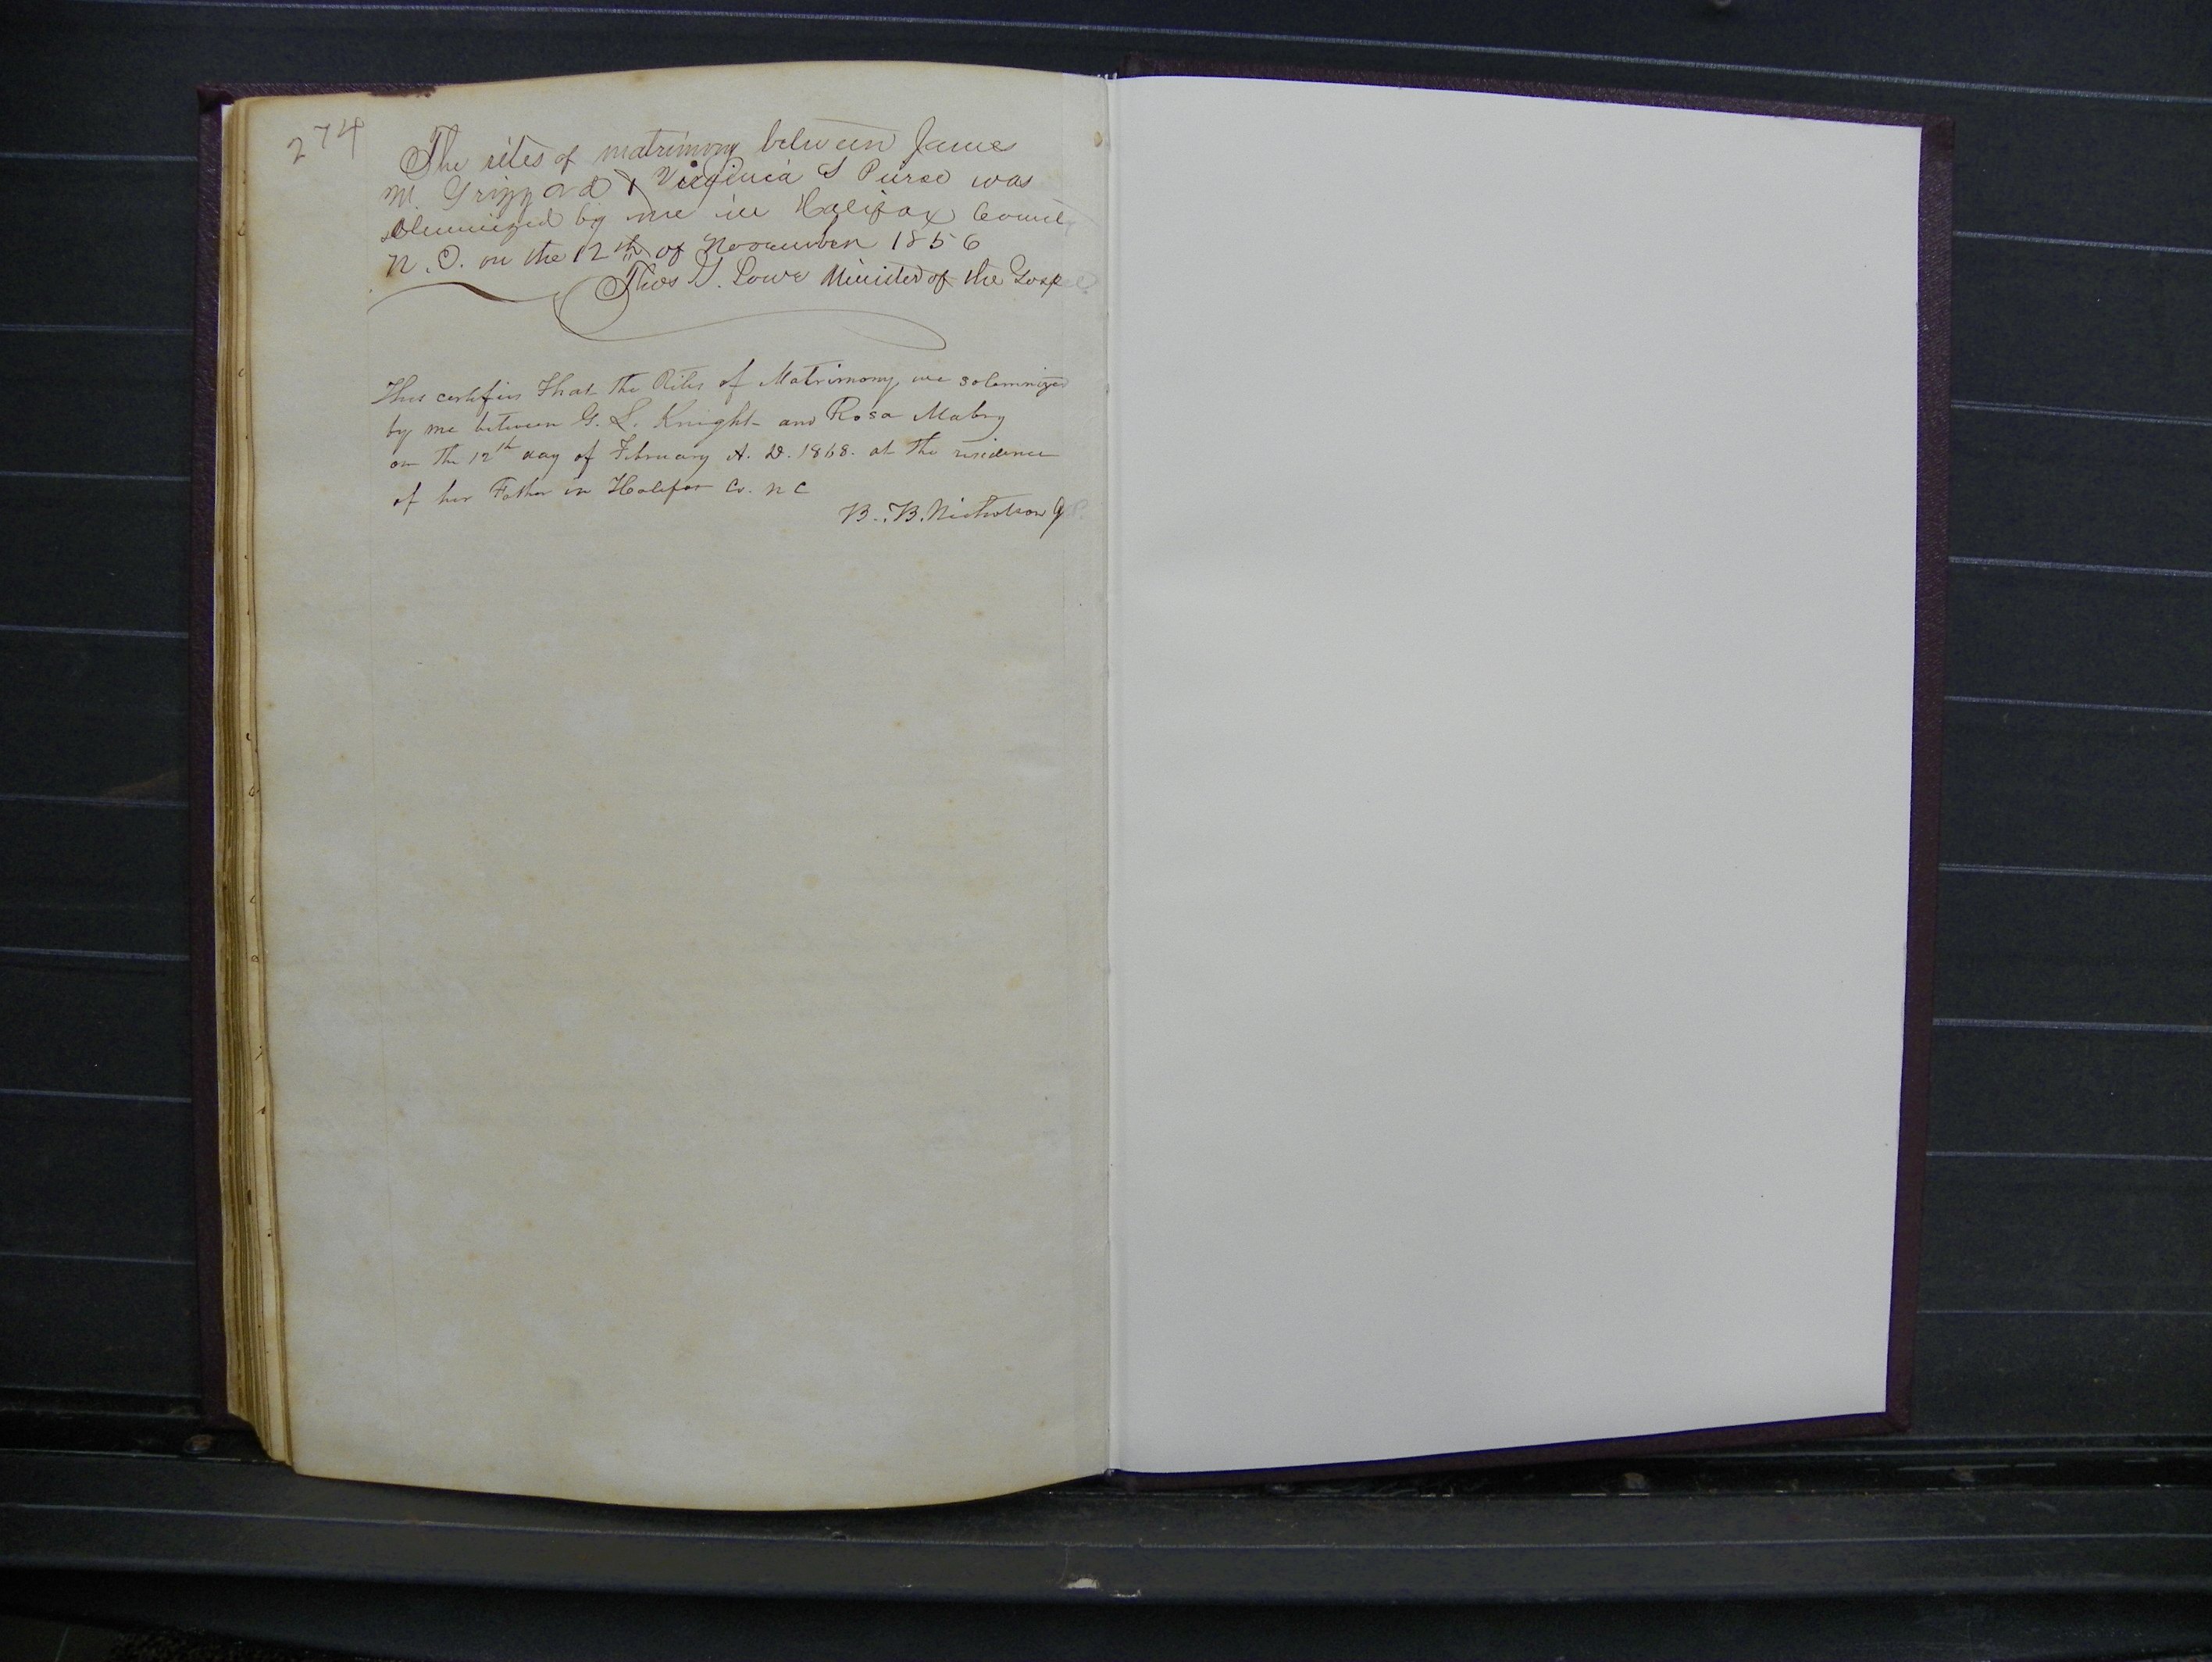 274
The rites of matrimony between James
M. Grizzard & Virginia S Pierce was
solemnized by me in Halifax County
N. C. on the 12th of November 1856
Thos G. Lowe Minister of the Gospel
This certifies that the Rites of Matrimony were solemnized
by me between G. L. Knight and Rosa Mabry
on the 12th day of February A. D. 1868. at the residence
of her Father in Halifax Co. N C
B. B. Nicholson J.P.